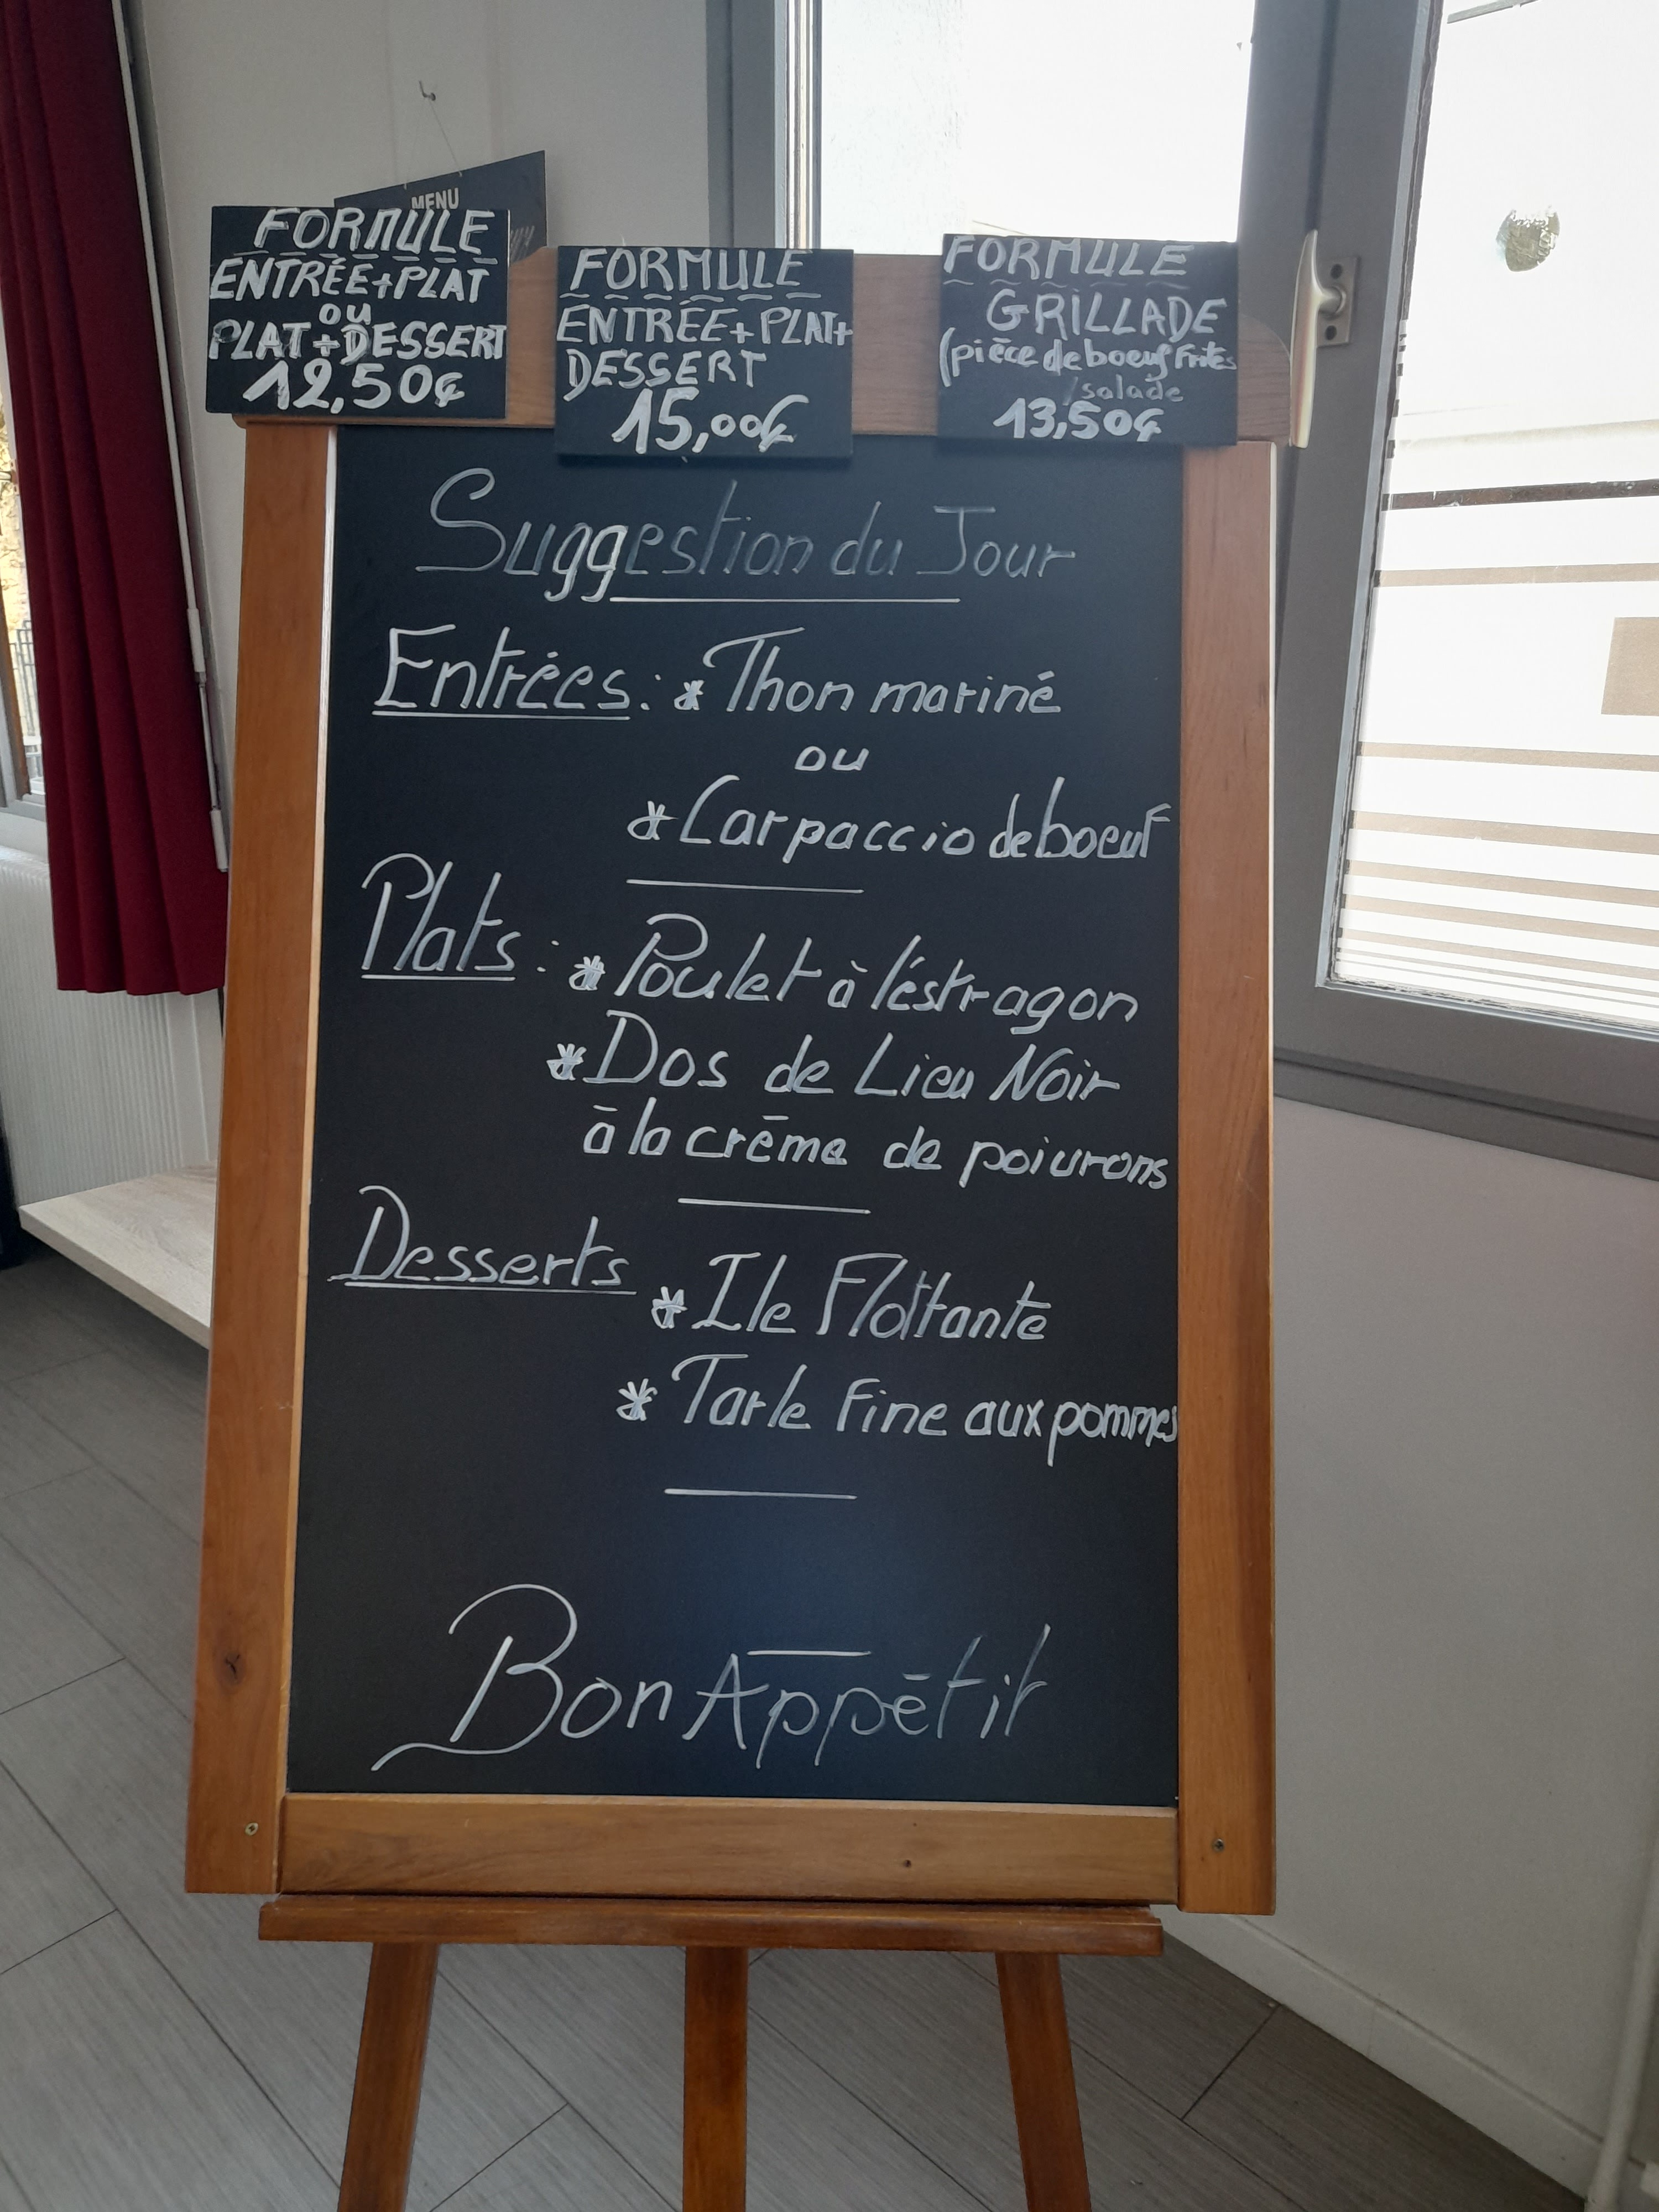 MENU
FORMULE
ENTRÉE+PLAT
ou
PLAT+DESSERT
12,50€
FORMULE
ENTRÉE+PLAT+
DESSERT
15,00€
FORMULE
GRILLADE
(pièce de boeuf Frites
/salade
13,50€
Suggestion du Jour
Entrées: * Thon mariné
ou
* Carpaccio de boeuf
Plats: * Poulet à l'éstragon
* Dos de Lieu Noir
à la crème de poivrons
Desserts
* Ile Flottante
* Tarte Fine aux pommes
Bon Appétit